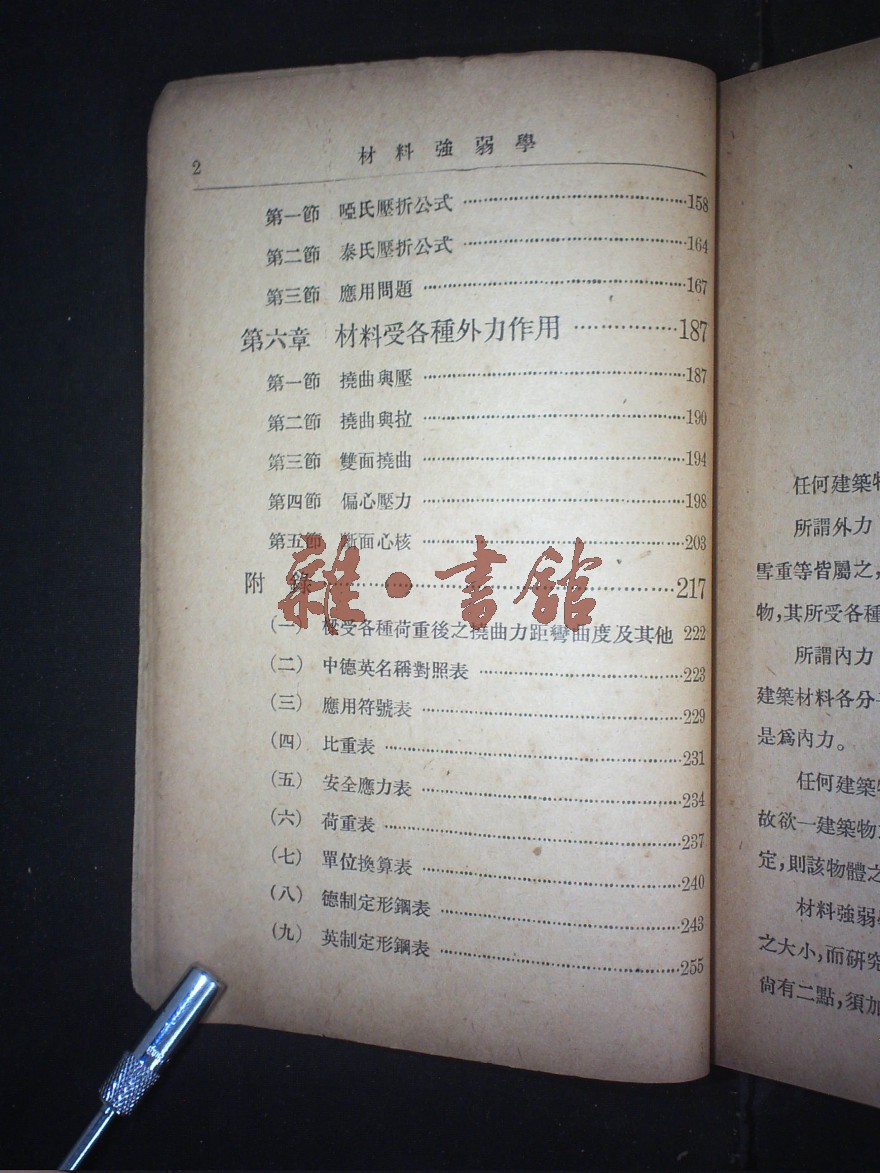 2 材料強弱學
第一節 啞氏壓折公式 158
第二節 泰氏壓折公式 164
第三節 應用問題 167
第六章 材料受各種外力作用 187
第一節 撓曲與壓 187
第二節 撓曲與拉 190
第三節 雙面撓曲 194
第四節 偏心壓力 198
第五節 斷面心核 203
附錄 217
(一) 樑受各種荷重後之撓曲力距彎曲度及其他 222
(二) 中德英名稱對照表 223
(三) 應用符號表 229
(四) 比重表 231
(五) 安全應力表 234
(六) 荷重表 237
(七) 單位換算表 240
(八) 德制定形鋼表 243
(九) 英制定形鋼表 255
雜·書館
任何建築物
所謂外力
雪重等皆屬之,
物,其所受各種
所謂內力
建築材料各分
是爲內力。
任何建築
故欲一建築物
定,則該物體之
材料強弱
之大小,而研究
尙有二點,須加